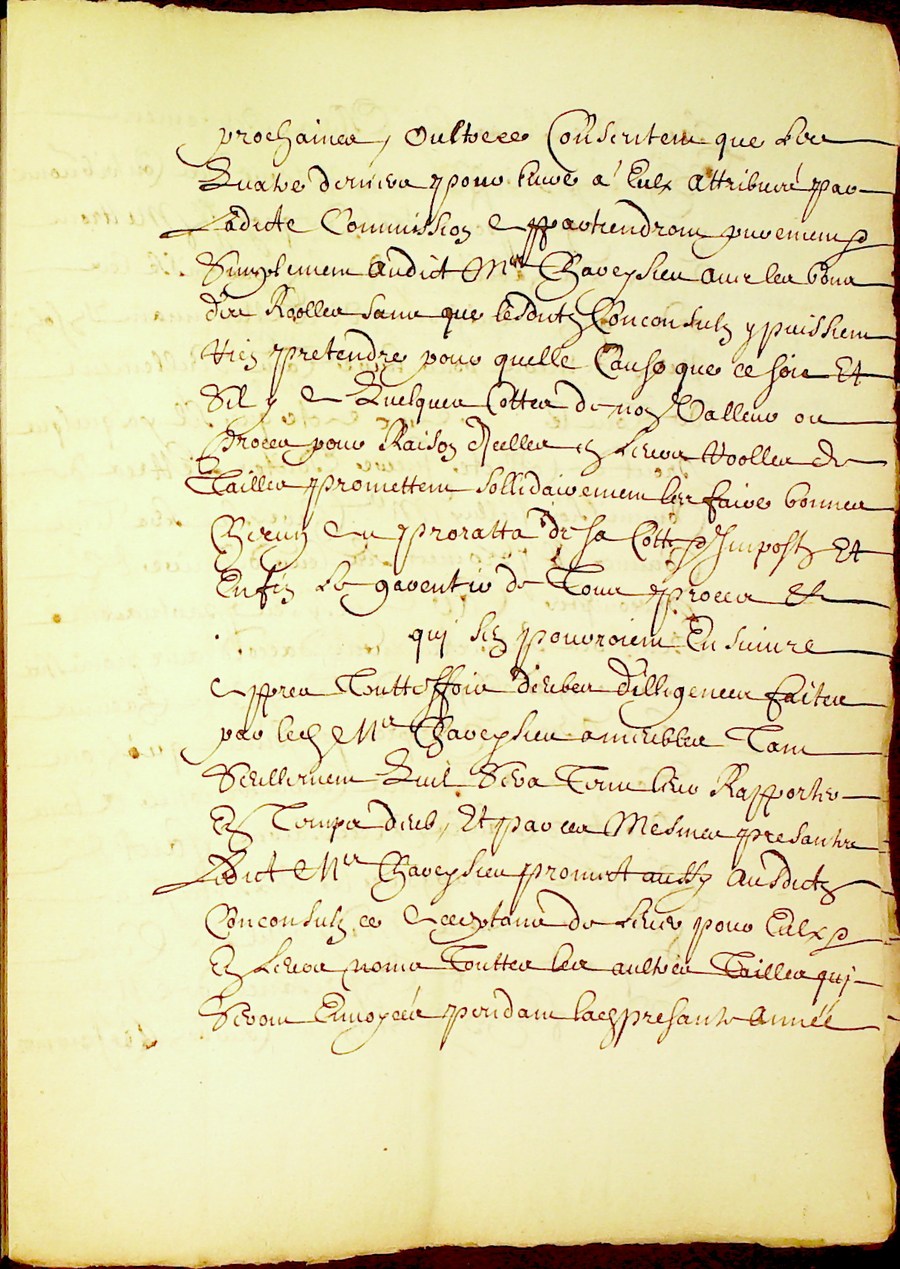 prochaines, oultre ce Consentent que les
Quatre deniers pour livre à Eulx Attribués par
Ladicte Commission appartiendront purement &
Simplement Audict Mre Chaveysieu avec les bons
des Roolles sans que lesdictz Conconsulz y puissient
Rien pretendre pour quelle Cause que ce soit Et
Sil y a Quelques Cottes de non Valleur ou
Proces pour Raison d'Icelles en Leurs Roolles de
Tailles promettent sollidairement les faire bonnes
Chescun au proratta de sa Cotte d'Impostz Et
Enfin Le garentir de Tous proces &
quj s'en pouroient Ensuivre
Appres Touttesffois deubes dilligences faites
par led Mre Chaveysieu a meubles Tant
Seullement Quil Sera Tenu leur Rapporter
En Temps deub, Et par ces Mesmes presantes
Ledict Mre Chaveysieu promet aussy Ausdictz
Conconsulz ce acceptans de Lever pour Eulx &
En Leurs noms Touttes les aultres Tailles quj
Seront Envoyées pendant lad presante Année